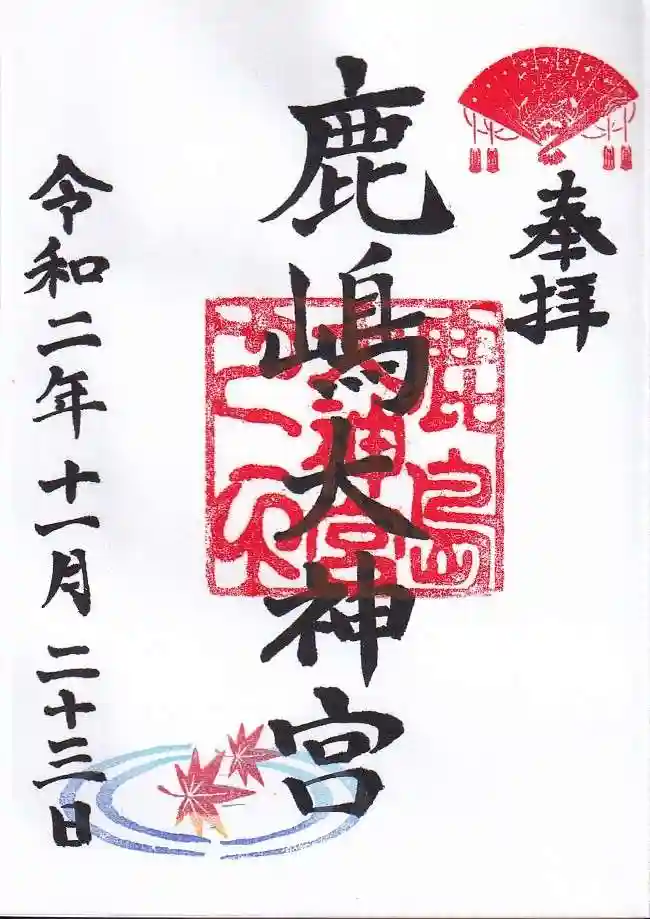 奉拝
鹿嶋大神宮
令和二年十一月二十三日